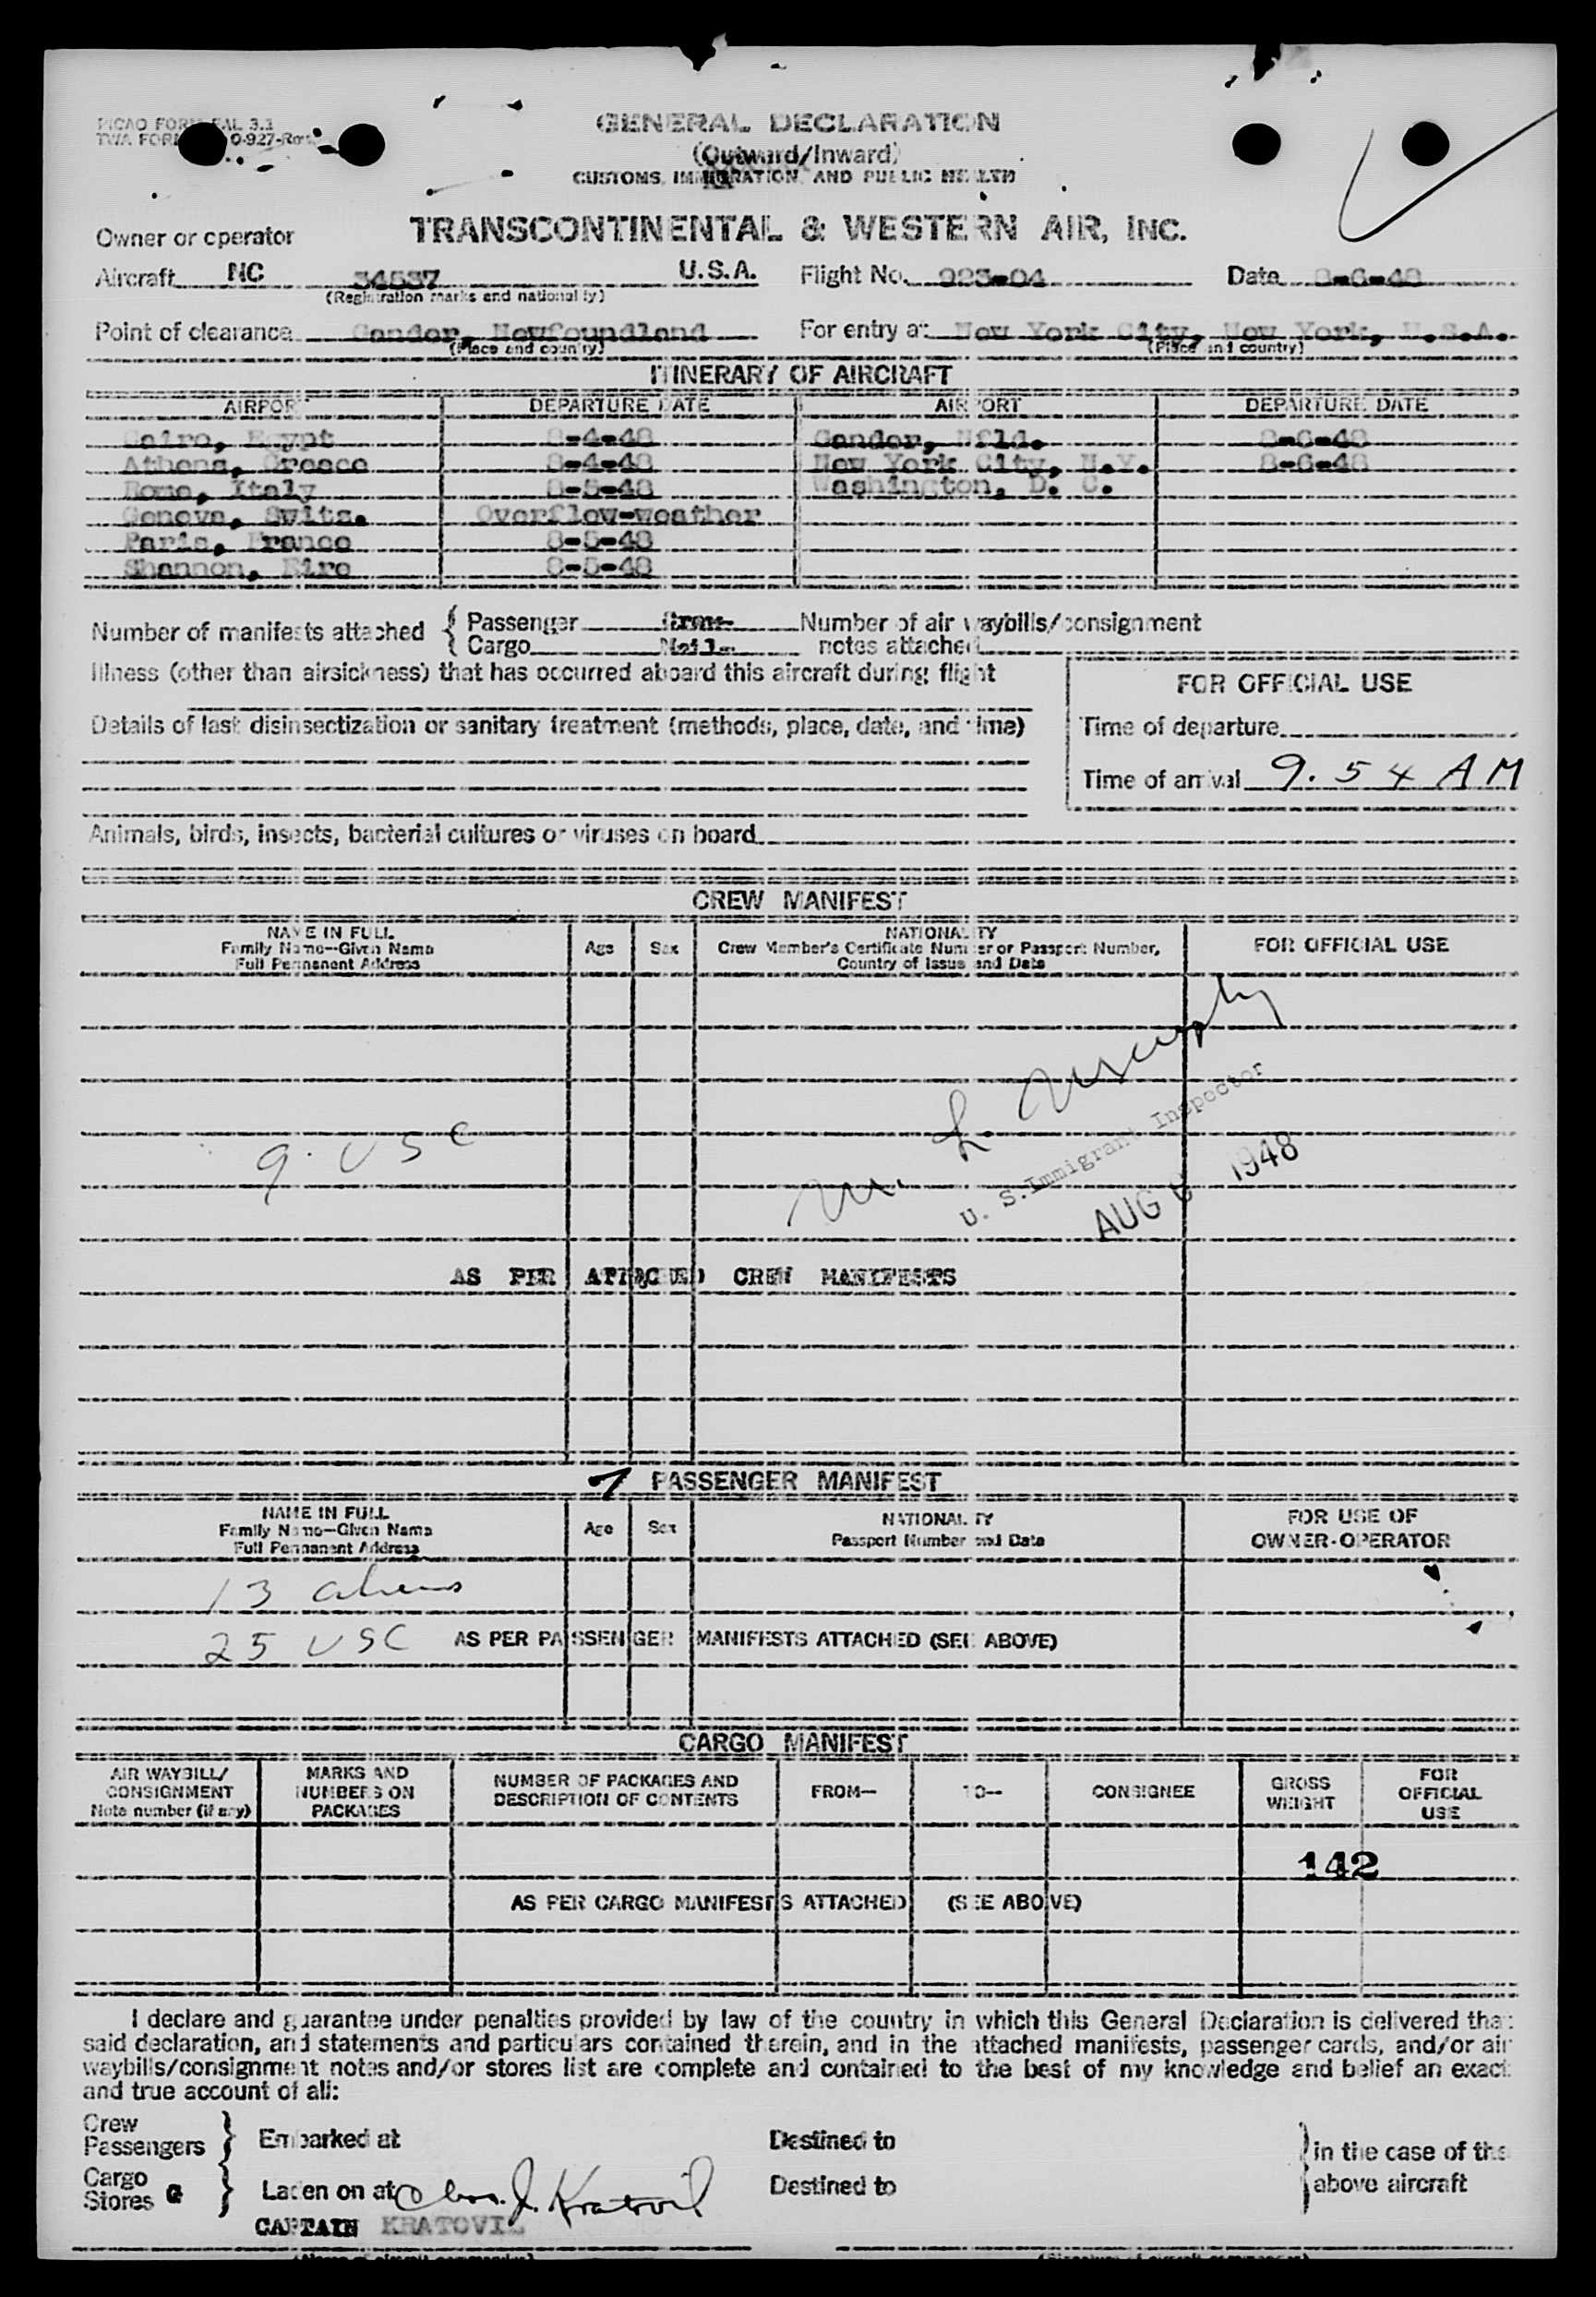 PICAO FORM FAL 3.1
TWA FORM 0-927-Rev.
GENERAL DECLARATION
(Outward/Inward)
CUSTOMS, IMMIGRATION, AND PUBLIC HEALTH
Owner or operator TRANSCONTINENTAL & WESTERN AIR, INC.
Aircraft NC 34537 U.S.A. Flight No. 923-04 Date 8-6-48
(Registration marks and nationality)
Point of clearance Gander, Newfoundland For entry at New York City, New York, U.S.A.
(Place and country) (Place and country)
ITINERARY OF AIRCRAFT
AIRPORT DEPARTURE DATE AIRPORT DEPARTURE DATE
Cairo, Egypt 8-4-48 Gander, Nfld. 8-6-48
Athens, Greece 8-4-48 New York City, N.Y. 8-6-48
Rome, Italy 8-5-48 Washington, D. C.
Geneva, Switz. Overflew-weather
Paris, France 8-5-48
Shannon, Eire 8-5-48
Number of manifests attached { Passenger Crew- Number of air waybills/consignment
Cargo Mail- notes attached
Illness (other than airsickness) that has occurred aboard this aircraft during flight
FOR OFFICIAL USE
Details of last disinsectization or sanitary treatment (methods, place, date, and time)
Time of departure
Time of arrival 9.54 AM
Animals, birds, insects, bacterial cultures or viruses on board
CREW MANIFEST
NAME IN FULL
Family Name—Given Name
Full Permanent Address
Age Sex
NATIONALITY
Crew Member's Certificate Number or Passport Number,
Country of Issue and Date
FOR OFFICIAL USE
9. USC
M. L. Murphy
U. S. Immigrant Inspector
AUG 6 1948
AS PER ATTACHED CREW MANIFESTS
PASSENGER MANIFEST
NAME IN FULL
Family Name—Given Name
Full Permanent Address
Age Sex
NATIONALITY
Passport Number and Date
FOR USE OF
OWNER-OPERATOR
13 aliens
25 USC AS PER PASSENGER MANIFESTS ATTACHED (SEE ABOVE)
CARGO MANIFEST
AIR WAYBILL/
CONSIGNMENT
Note number (if any)
MARKS AND
NUMBERS ON
PACKAGES
NUMBER OF PACKAGES AND
DESCRIPTION OF CONTENTS
FROM— TO— CONSIGNEE
GROSS
WEIGHT
FOR
OFFICIAL
USE
142
AS PER CARGO MANIFESTS ATTACHED (SEE ABOVE)
I declare and guarantee under penalties provided by law of the country in which this General Declaration is delivered that
said declaration, and statements and particulars contained therein, and in the attached manifests, passenger cards, and/or air
waybills/consignment notes and/or stores list are complete and contained to the best of my knowledge and belief an exact
and true account of all:
Crew
Passengers } Embarked at Destined to } in the case of the
Cargo
Stores G } Laden on at Destined to above aircraft
Chas. J. Kratovil
CAPTAIN KRATOVIL